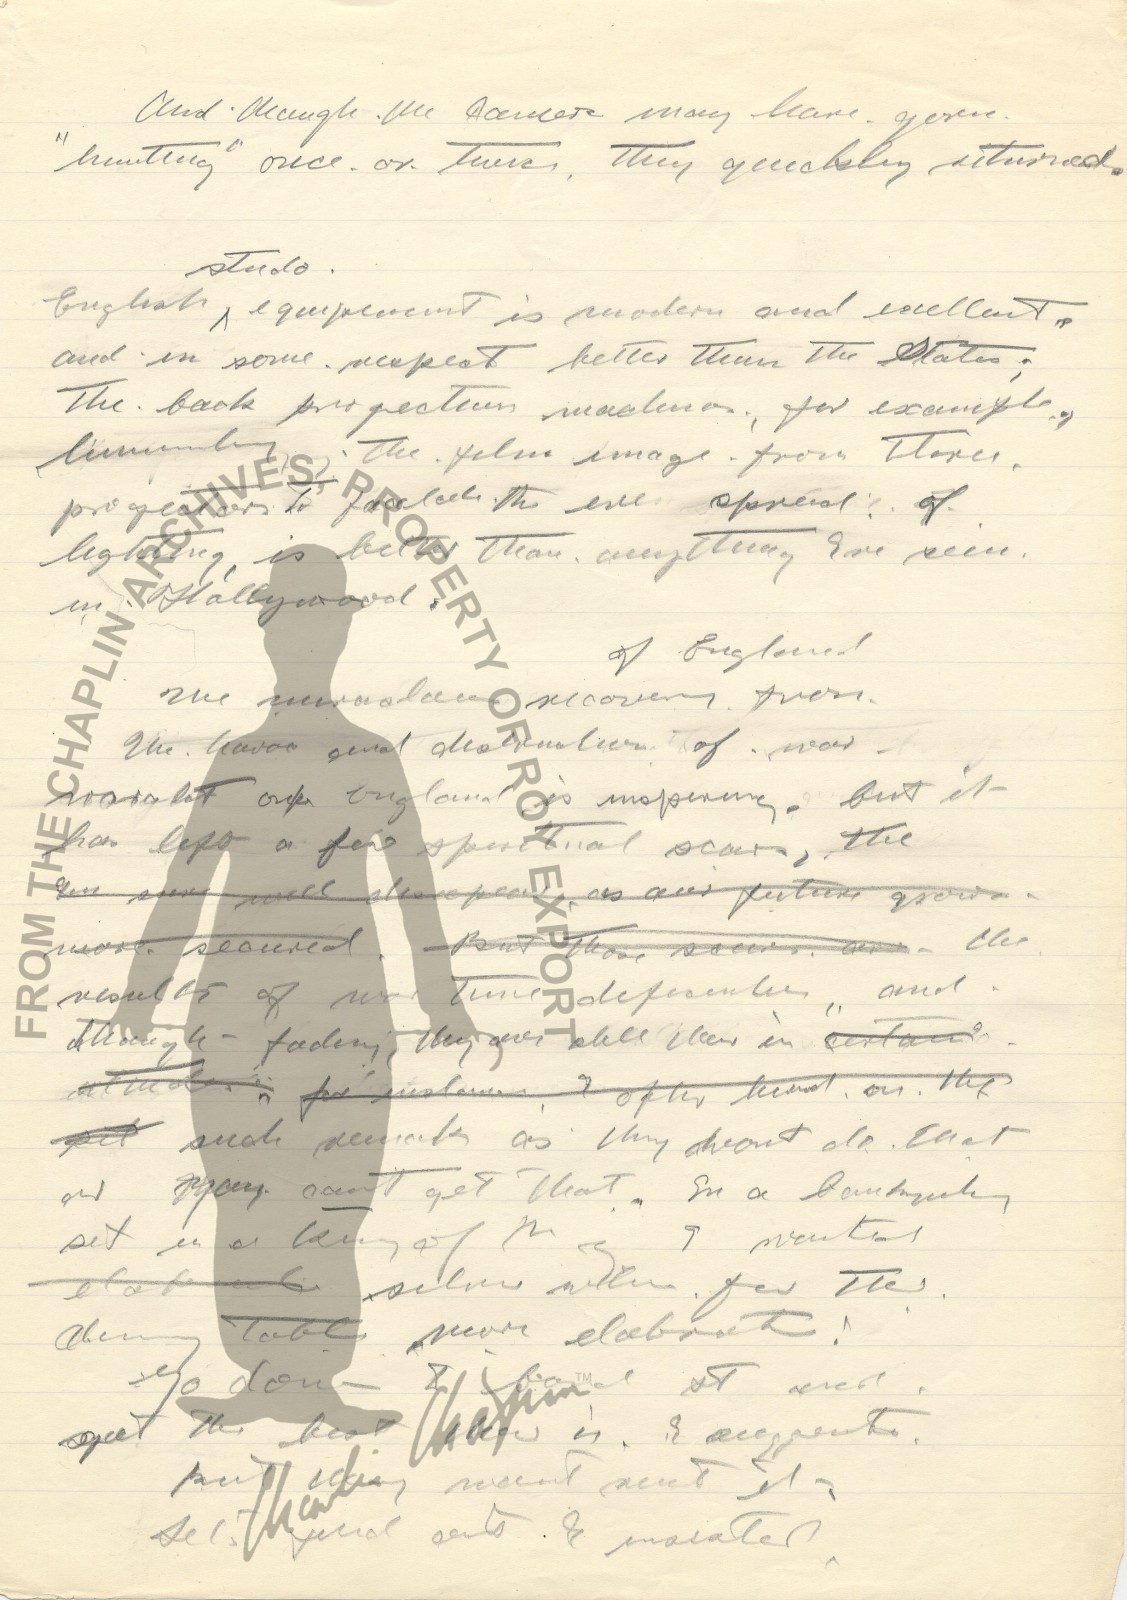 And though the may have gone
"hunting" once or twice, they quickly returned.
studo.
English equipment is modern and excellent,
and in some respect better than the States;
The back projection machine, for example,
the film image from three
projectors to the even spread of
lighting, is better than anything I've seen
in Hollywood.
of England
The miraculous recovery from
The havoc and destruction of war
England is inspiring. but it
has left a few spiritual scars, the
I'm sure will disappear as our future grows
more secured. But those scars are the
results of war time and
though fading, they are still there in certain
attitudes: for instance, I often heard on the
set such remarks as they won't do that
or you can't get that. In a banqueting
set in a King of N Y I wanted
elaborate silver for the
dining table more elaborate!
go don
get the best there is. I suggested.
But they wont rent it
find out I insisted.
FROM THE CHAPLIN ARCHIVES, PROPERTY OF ROY EXPORT
Charlie Chaplin™